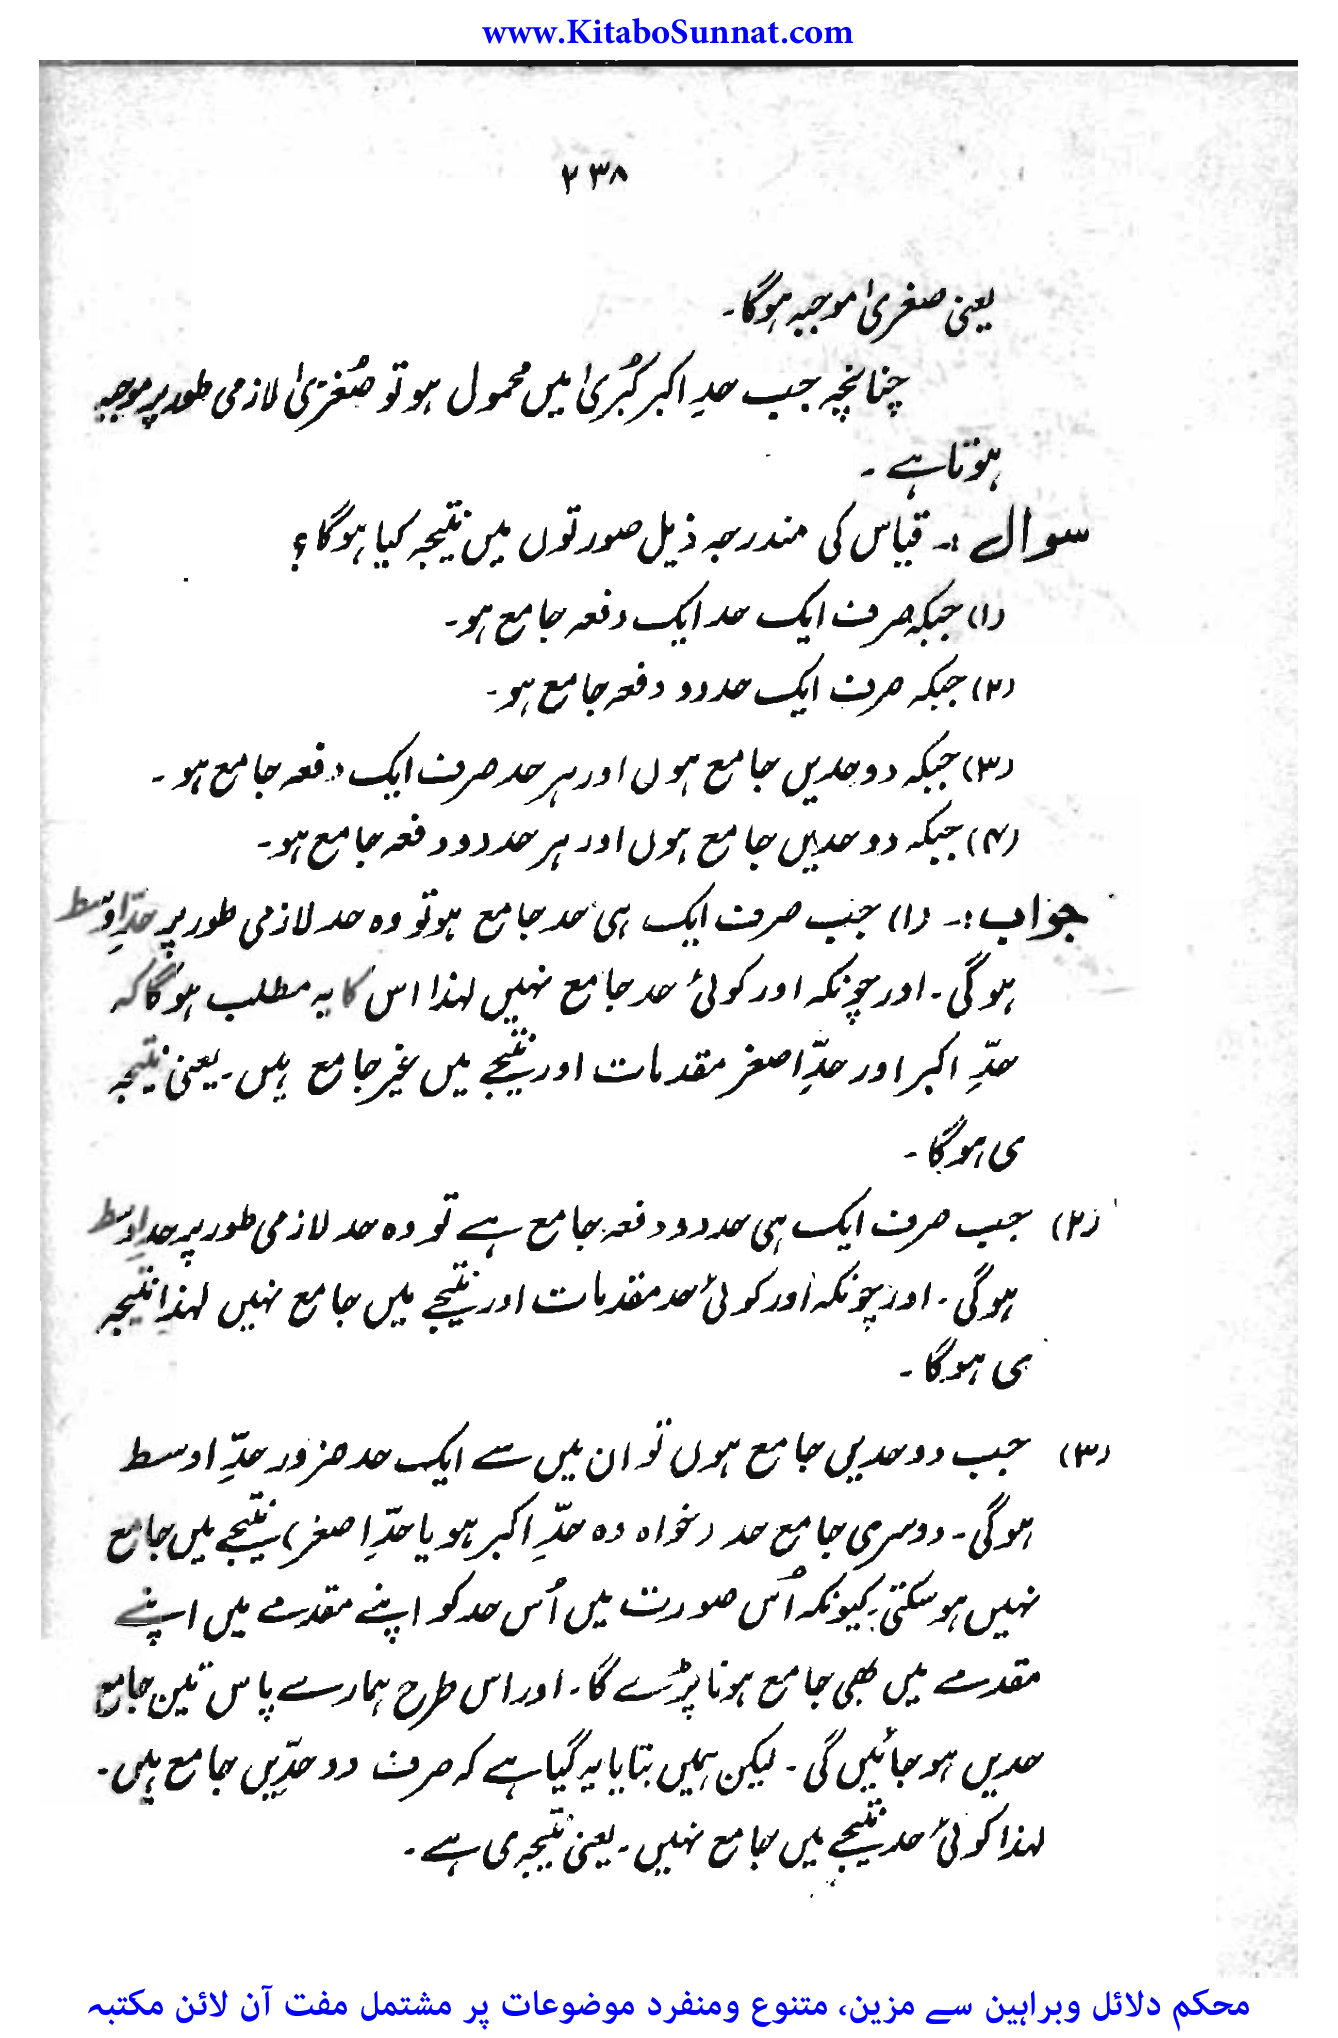 www.KitaboSunnat.com
۲۳۸
یعنی صغریٰ موجبہ ہوگا۔
چنانچہ جب حدِ اکبر کُبریٰ میں محمول ہو تو صُغریٰ لازمی طور پر موجبہ
ہوتا ہے ۔
سوال :۔ قیاس کی مندرجہ ذیل صورتوں میں نتیجہ کیا ہوگا ؟
(۱) جبکہ صرف ایک حد ایک دفعہ جامع ہو۔
(۲) جبکہ صرف ایک حد دو دفعہ جامع ہو۔
(۳) جبکہ دو حدیں جامع ہوں اور ہر حد صرف ایک دفعہ جامع ہو ۔
(۴) جبکہ دو حدیں جامع ہوں اور ہر حد دو دفعہ جامع ہو۔
جواب :۔ (۱) جب صرف ایک ہی حد جامع ہو تو وہ حد لازمی طور پر حدِّ اوسط
ہوگی ۔ اور چونکہ اور کوئی حد جامع نہیں لہذا اس کا یہ مطلب ہوگا کہ
حدِّ اکبر اور حدِّ اصغر مقدمات اور نتیجے میں غیر جامع ہیں ۔ یعنی نتیجہ
ی ہوگا ۔
(۲) جب صرف ایک ہی حد دو دفعہ جامع ہے تو وہ حد لازمی طور پر حدِ اوسط
ہوگی ۔ اور چونکہ اور کوئی حد مقدمات اور نتیجے میں جامع نہیں لہذا نتیجہ
ی ہوگا ۔
(۳) جب دو حدیں جامع ہوں تو ان میں سے ایک حد ضرور حدِّ اوسط
ہوگی ۔ دوسری جامع حد (خواہ وہ حدِّ اکبر ہو یا حدِّ اصغر) نتیجے میں جامع
نہیں ہو سکتی ۔ کیونکہ اُس صورت میں اُس حد کو اپنے مقدمے میں اپنے
مقدمے میں بھی جامع ہونا پڑے گا ۔ اور اس طرح ہمارے پاس تین جامع
حدیں ہو جائیں گی ۔ لیکن ہمیں بتایا یہ گیا ہے کہ صرف دو حدّیں جامع ہیں ۔
لہذا کوئی حد نتیجے میں جامع نہیں ۔ یعنی نتیجہ ی ہے ۔
محکم دلائل وبراہین سے مزین، متنوع ومنفرد موضوعات پر مشتمل مفت آن لائن مکتبہ